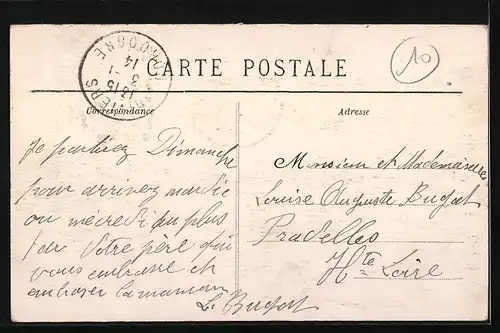 CARTE POSTALE
10
Correspondance
Adresse
13 15
3 -1
14
DORDOGNE
Je partirez Dimanche
pour arrivez mardi
ou mecredi au plus
tar Votre père qui
vous embrasse et
embrasser la maman
L. Bugat
Monsieur et Mademoiselle
Louise Auguste Bugat
Pradelles
Hte Loire